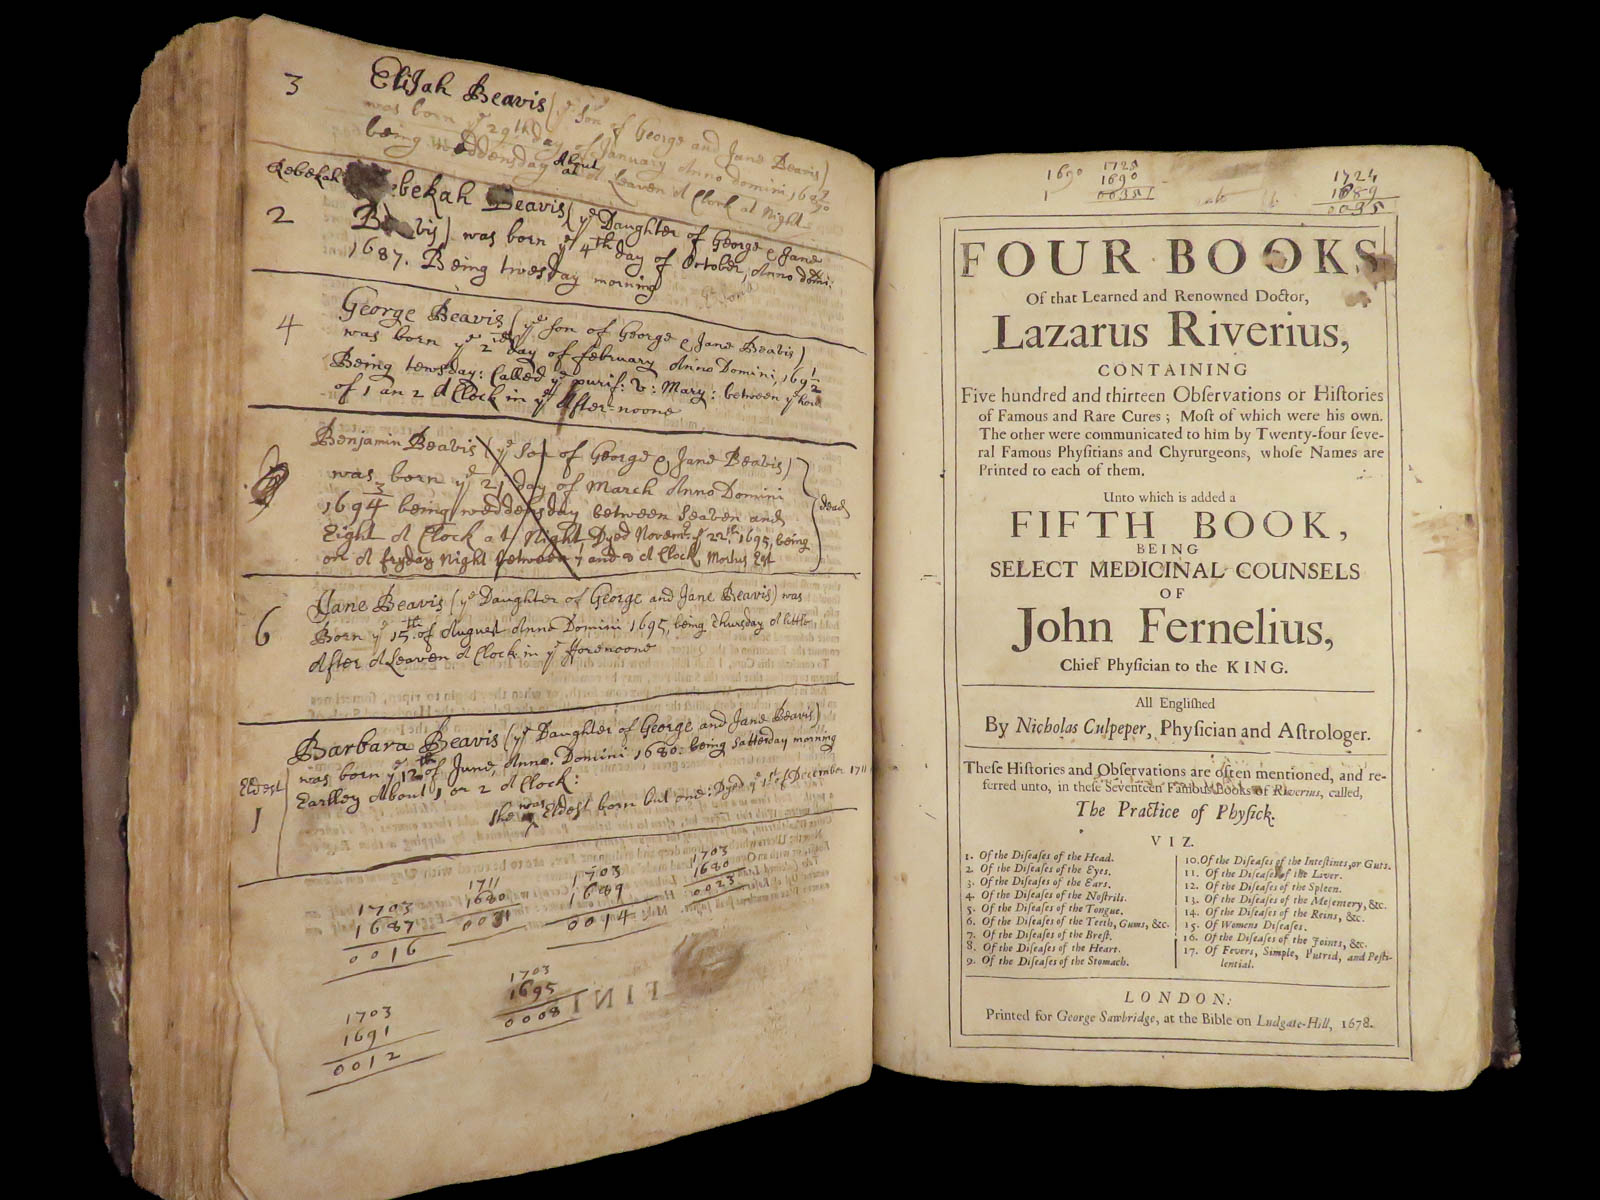 3 Elijah Beavis (ye Son of George and Jane Beavis)
was born ye 29th day of January Anno domini 16 89/90
being weddensday About
at Leaven A Clock at Night
Rebekah bekah Beavis (ye Daughter of George & Jane
2 Beavis) was born ye 4th day of October, Anno domi:
1687. Being twesday morning
4 George Beavis (ye Son of George & Jane Beavis)
was born ye 2nd day of february Anno Domini, 169 1/2
Being tewsday: Called ye purif: V: Mary: between ye hour
of 1 an 2 A Clock in ye After-noone
Benjamin Beavis (ye Son of George & Jane Beavis)
was born ye 21 day of March Anno Domini
169 3/4 being weddensday between Seaven and
Eight A Clock at Night Dyed Novem: ye 22th 1695, being
on A fryday Night between 7 and 8 A Clock, Mortuus Est
dead
6 Jane Beavis (ye Daughter of George and Jane Beavis) was
Born ye 15th of August Anno Domini 1695, being Thursday A little
After A Leaven A Clock in ye fforenoone
Barbara Beavis (ye Daughter of George and Jane Beavis)
Eldest was born ye 12th of June, Anno: Domini 1680: being Satterday morning
1 Earlley About 1 or 2 A Clock:
She was Eldest born but one: Dyed ye 1st of December 1711
1703
1687
0016
1711
1680
0031
1703
1689
0014
1703
1680
0023
1703
1691
0012
1703
1695
0008
FINIS
1690
1
1725
1690
0035
1724
1689
0035
FOUR BOOKS
Of that Learned and Renowned Doctor,
Lazarus Riverius,
CONTAINING
Five hundred and thirteen Observations or Histories
of Famous and Rare Cures; Most of which were his own.
The other were communicated to him by Twenty-four seve-
ral Famous Physitians and Chyrurgeons, whose Names are
Printed to each of them.
Unto which is added a
FIFTH BOOK,
BEING
SELECT MEDICINAL COUNSELS
OF
John Fernelius,
Chief Physician to the KING.
All Englished
By Nicholas Culpeper, Physician and Astrologer.
These Histories and Observations are often mentioned, and re-
ferred unto, in these Seventeen Famous Books of Riverius, called,
The Practice of Physick.
VIZ.
1. Of the Diseases of the Head.
2. Of the Diseases of the Eyes.
3. Of the Diseases of the Ears.
4. Of the Diseases of the Nostrils.
5. Of the Diseases of the Tongue.
6. Of the Diseases of the Teeth, Gums, &c.
7. Of the Diseases of the Brest.
8. Of the Diseases of the Heart.
9. Of the Diseases of the Stomach.
10. Of the Diseases of the Intestines, or Guts.
11. Of the Diseases of the Liver.
12. Of the Diseases of the Spleen.
13. Of the Diseases of the Mesentery, &c.
14. Of the Diseases of the Reins, &c.
15. Of Womens Diseases.
16. Of the Diseases of the Joints, &c.
17. Of Fevers, Simple, Putrid, and Pesti-
lential.
LONDON:
Printed for George Sawbridge, at the Bible on Ludgate-Hill, 1678.